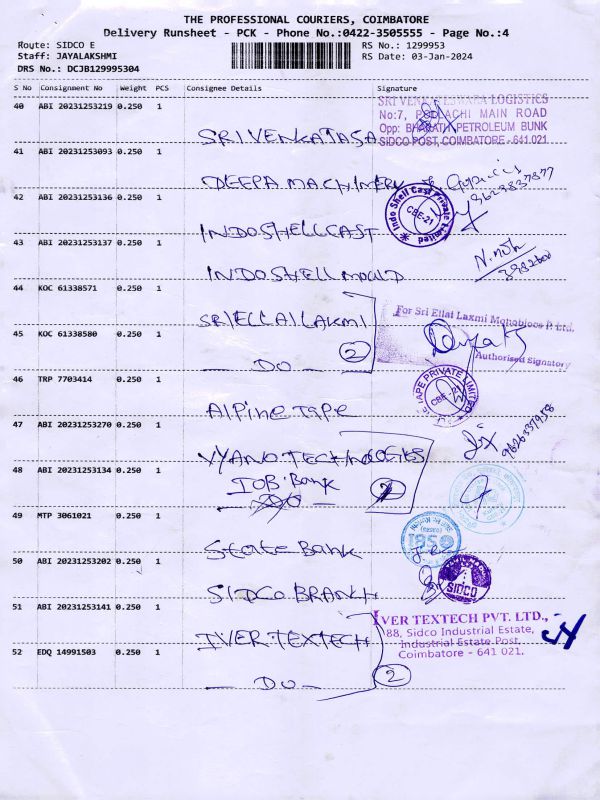 THE PROFESSIONAL COURIERS, COIMBATORE
Delivery Runsheet - PCK - Phone No.:0422-3505555 - Page No.:4
Route: SIDCO E RS No.: 1299953
Staff: JAYALAKSHMI RS Date: 03-Jan-2024
DRS No.: DCJB129995304
S No Consignment No Weight PCS Consignee Details Signature
40 ABI 20231253219 0.250 1
SRI VENKATESWARA LOGISTICS
No:7, POLLACHI MAIN ROAD
Opp: BHARATH PETROLEUM BUNK
SIDCO POST, COIMBATORE - 641 021
SRIVENKATASA
41 ABI 20231253093 0.250 1
DEEPA MACHINERY
42 ABI 20231253136 0.250 1
Indo Shell Cast Private Limited
CBE-21
INDOSHELLCAST
43 ABI 20231253137 0.250 1
INDOSHELL MOULD
44 KOC 61338571 0.250 1
For Sri Ellai Laxmi Mohobloos P. Ltd.
SRI ELLAI LAKMI
2
45 KOC 61338580 0.250 1
Authorised Signatory
- DO -
46 TRP 7703414 0.250 1
TAPE PRIVATE LIMITED
CBE-21
Alpine Tape
47 ABI 20231253270 0.250 1
9626337958
VYANO TECHNOLOGIES
48 ABI 20231253134 0.250 1
IOB Bank
2
49 MTP 3061021 0.250 1
State Bank
50 ABI 20231253202 0.250 1
SIDCO
SIDCO BRANCH
51 ABI 20231253141 0.250 1
IVER TEXTECH PVT. LTD.,
88, Sidco Industrial Estate,
Industrial Estate Post,
Coimbatore - 641 021.
IVER TEXTECH
52 EDQ 14991503 0.250 1
2
- DO -